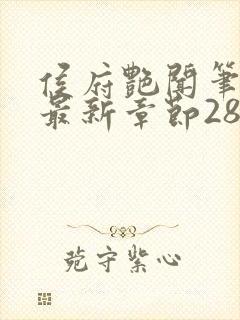 侯府艷聞筆
最新章節28
菀守紫心